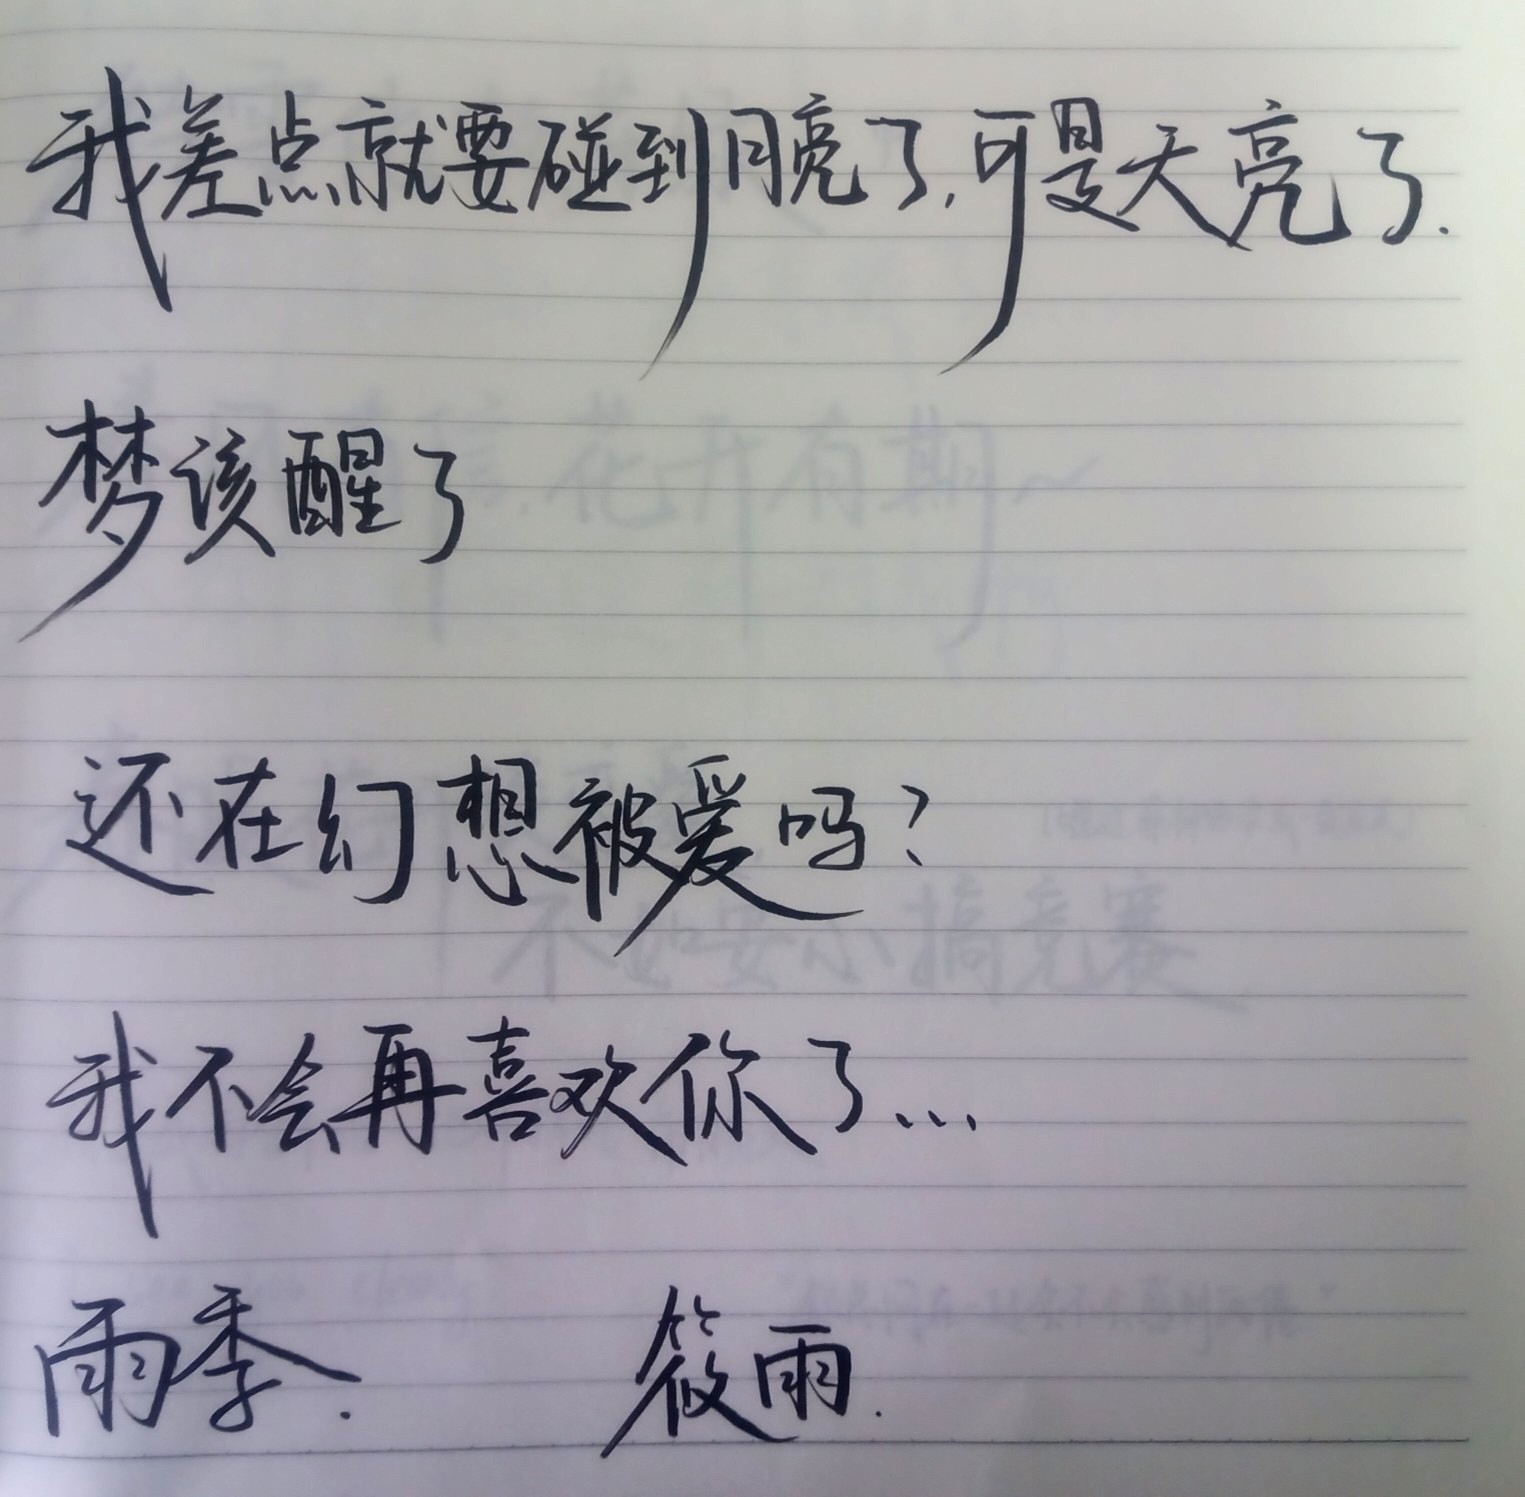 我差点就要碰到月亮了,可是天亮了.
梦该醒了
还在幻想被爱吗?
我不会再喜欢你了...
雨季. 筱雨.